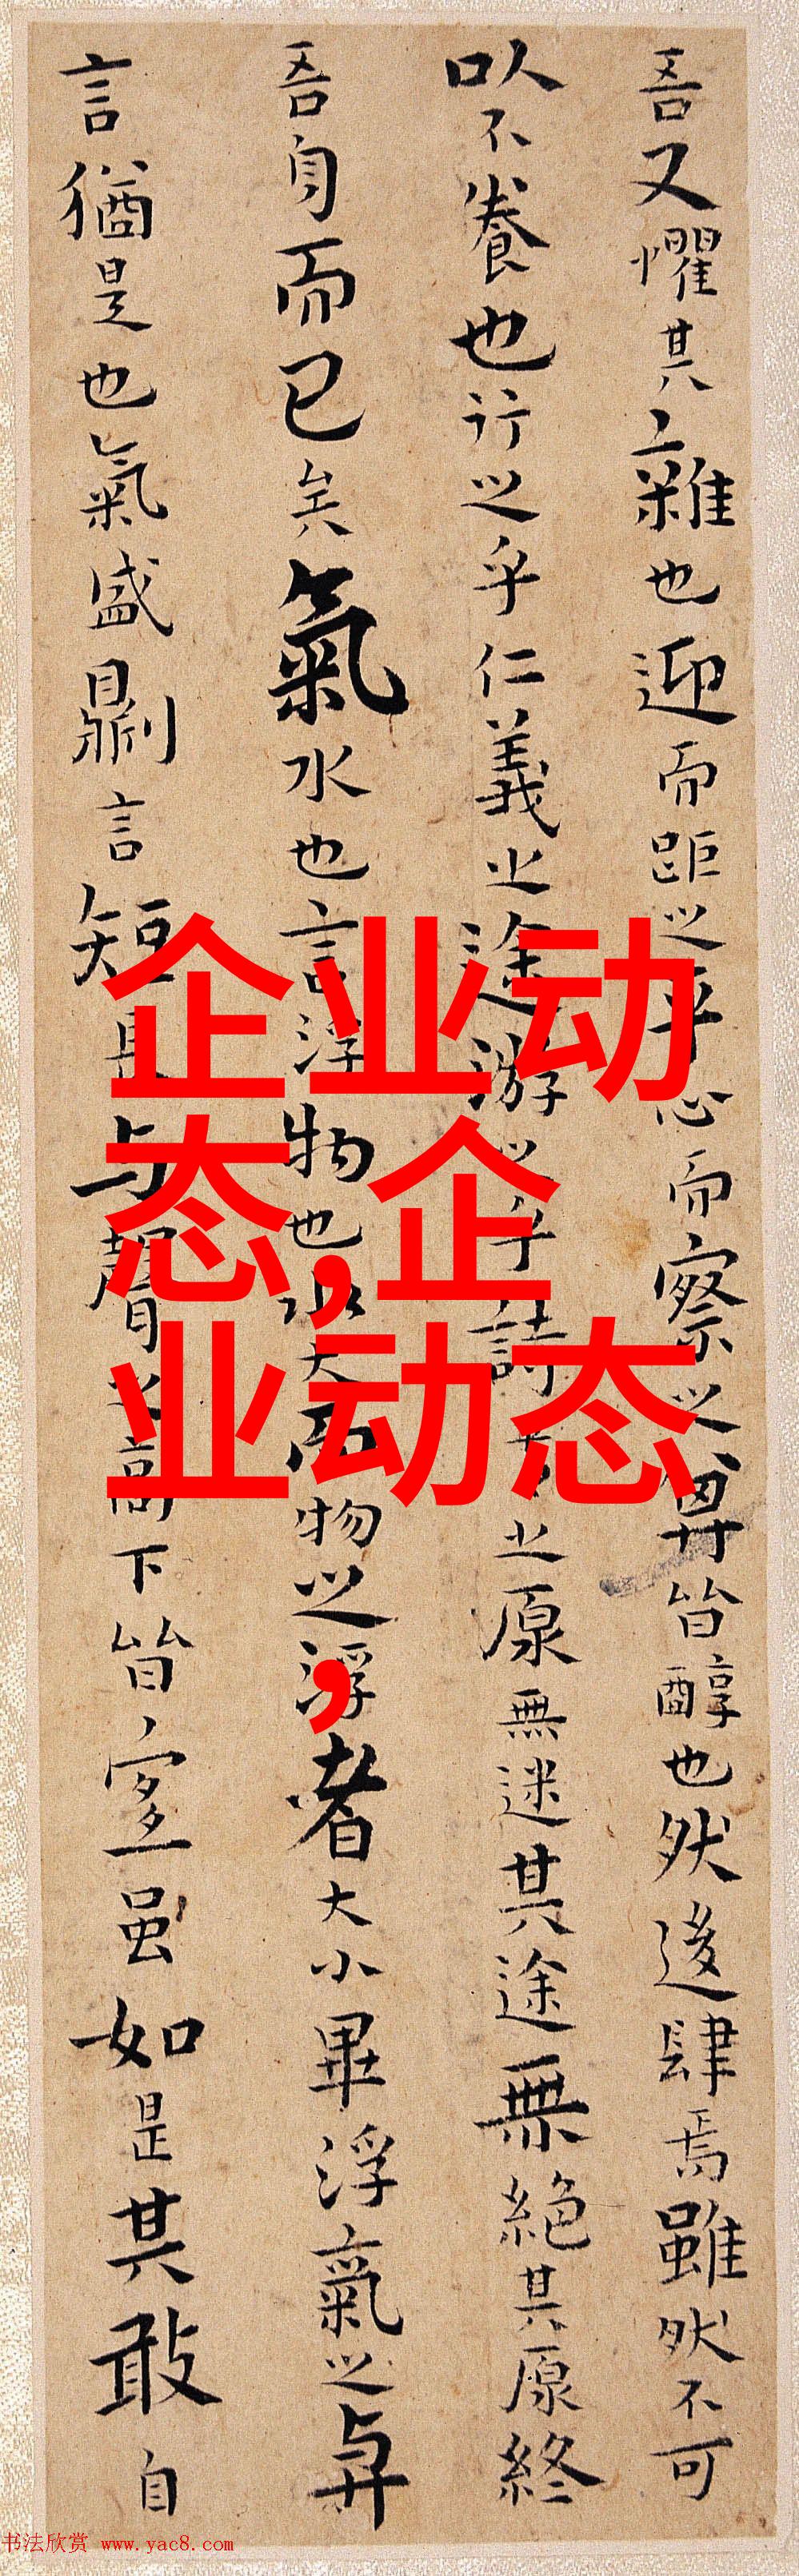 吾又懼其雜也迎而距之平心而察之其皆醇也然後肆焉雖然不可
以不養也行之乎仁義之途游之乎詩書之原無迷其途無絕其原終
吾身而已矣氣水也言浮物也水大而物之浮者大小畢浮氣之與
言猶是也氣盛則言短長與聲之高下皆宜雖如是其敢自
企业动
态,企
业动态
,
书法欣赏 www.yac8.com